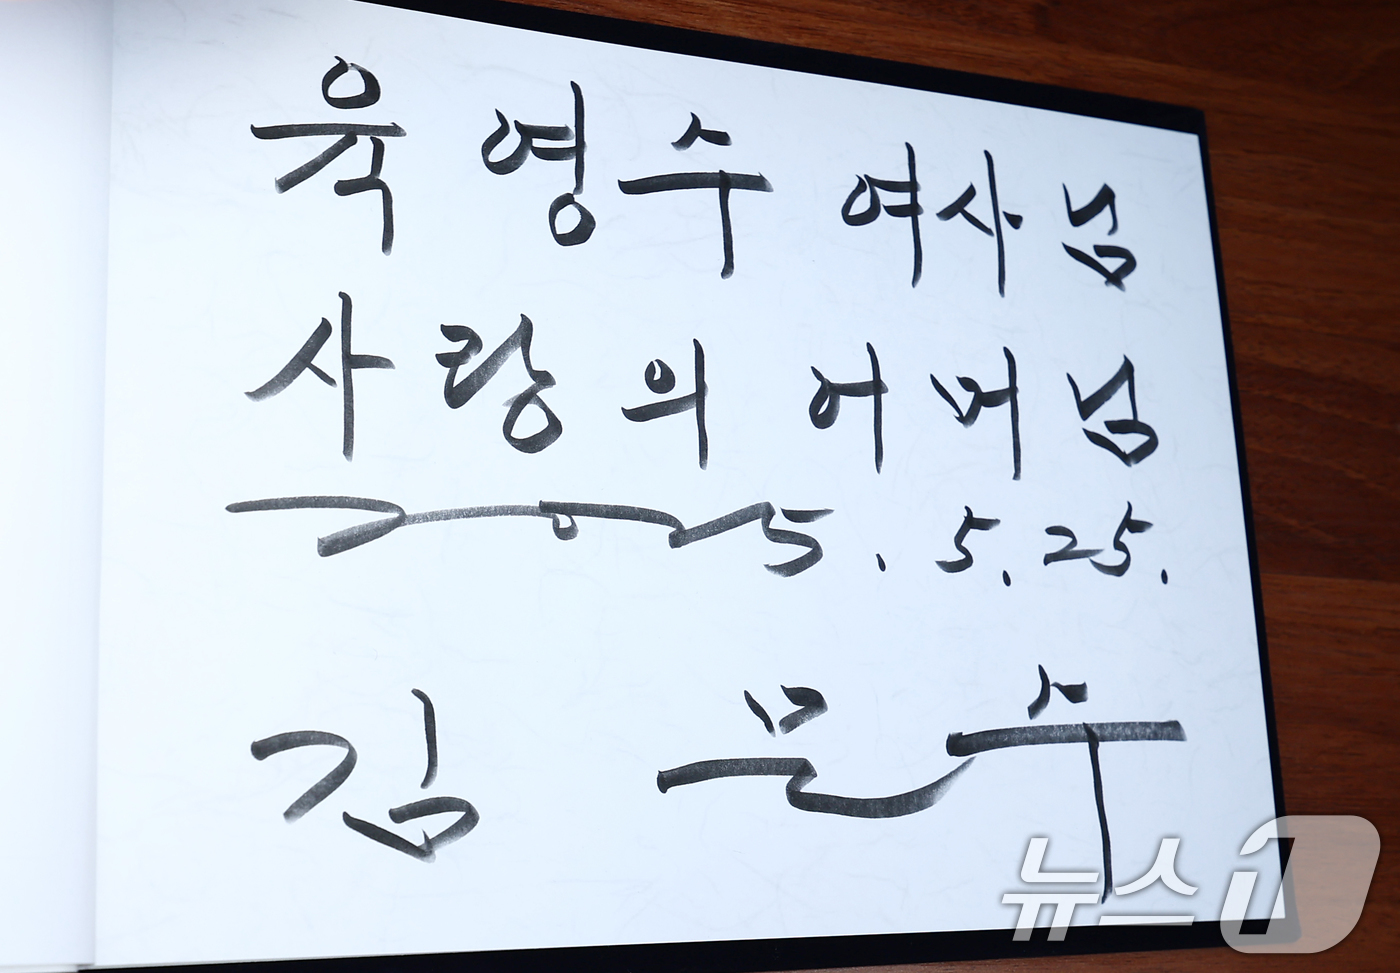 육영수 여사님
사랑의 어머님
2025. 5. 25.
김문수
뉴스1